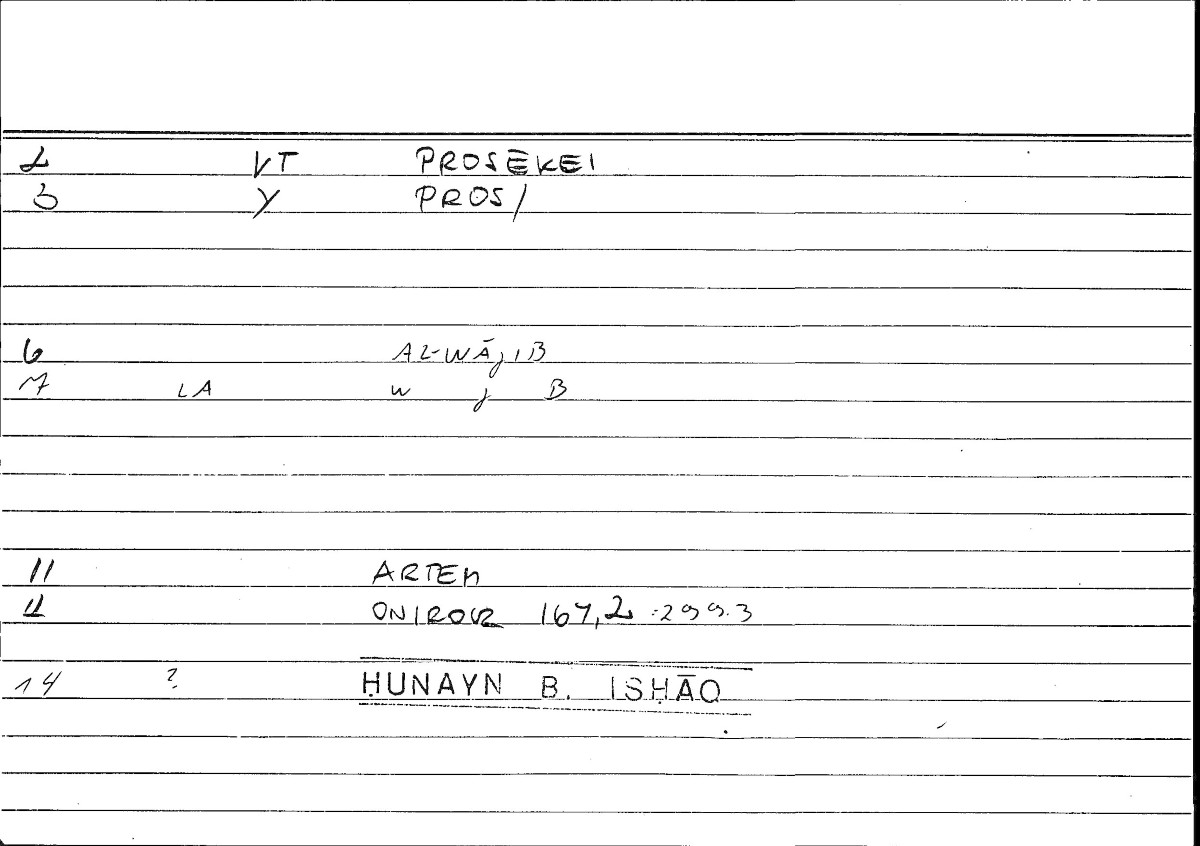 2 VT PROSĒKEI
3 Y PROS/
6 AL-WĀjIB
7 LA w j B
11 ARTEM
12 ONIROCR 164,2 :299.3
14 ? ḤUNAYN B. ISḤĀQ